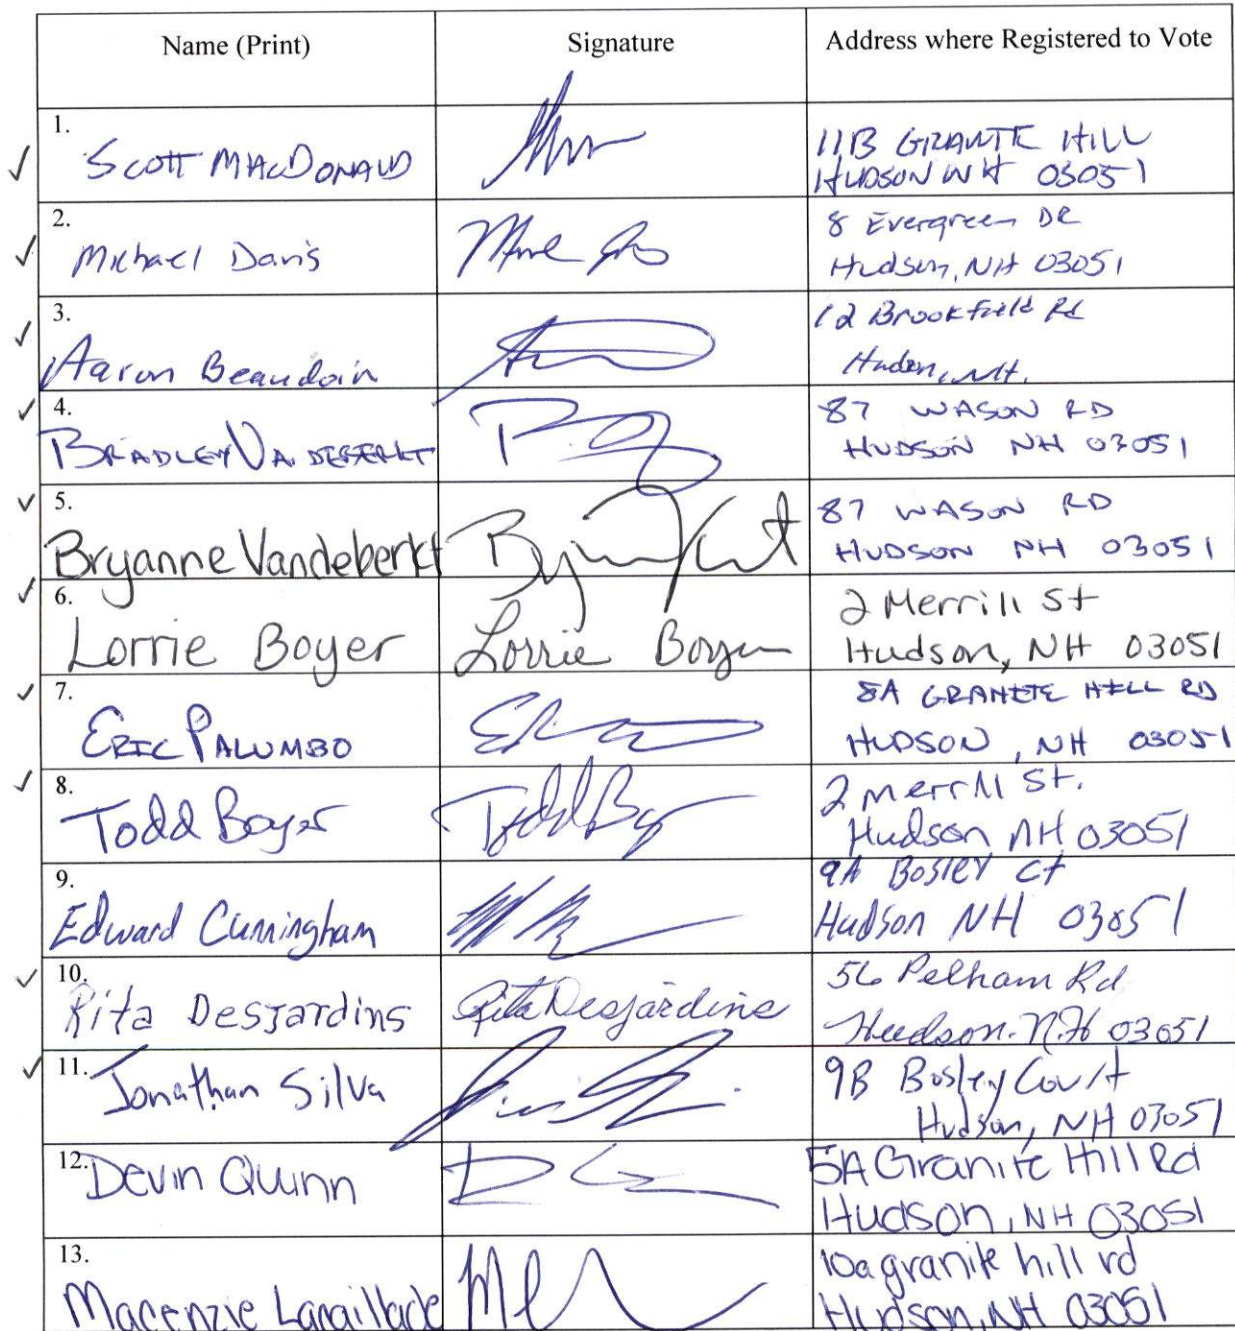 Name (Print) Signature Address where Registered to Vote
1.
SCOTT MACDONALD
11B GRANITE HILL
HUDSON NH 03051
2.
Michael Davis
8 Evergreen DR
Hudson, NH 03051
3.
Aaron Beaudoin
12 Brookfield Rd
Hudson, NH.
4.
BRADLEY
87 WASON RD
HUDSON NH 03051
5.
Bryanne Vandeberkt
87 WASON RD
HUDSON NH 03051
6.
Lorrie Boyer Lorrie Boyer
2 Merrill St
Hudson, NH 03051
7.
ERIC PALUMBO
8A GRANITE HILL RD
HUDSON, NH 03051
8.
Todd Boyer Todd Boyer
2 Merrill St.
Hudson NH 03051
9.
Edward Cunningham
9A Bosley Ct
Hudson NH 03051
10.
Rita Desjardins Rita Desjardins
56 Pelham Rd
Hudson. N.H 03051
11.
Jonathan Silva
9B Bosley Court
Hudson, NH 03051
12.
Devin Quinn
5A Granite Hill Rd
Hudson, NH 03051
13.
Macenzie
10a granite hill rd
Hudson, NH 03051